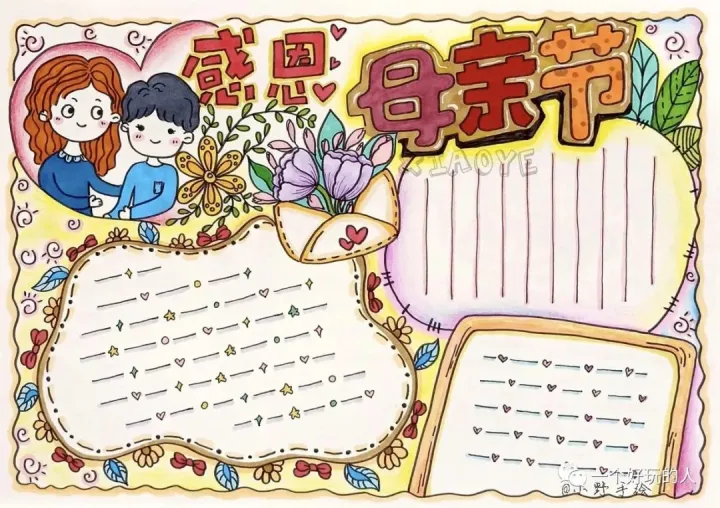 感恩
母亲节
XIAOYE
一个好玩的人
@小野手绘